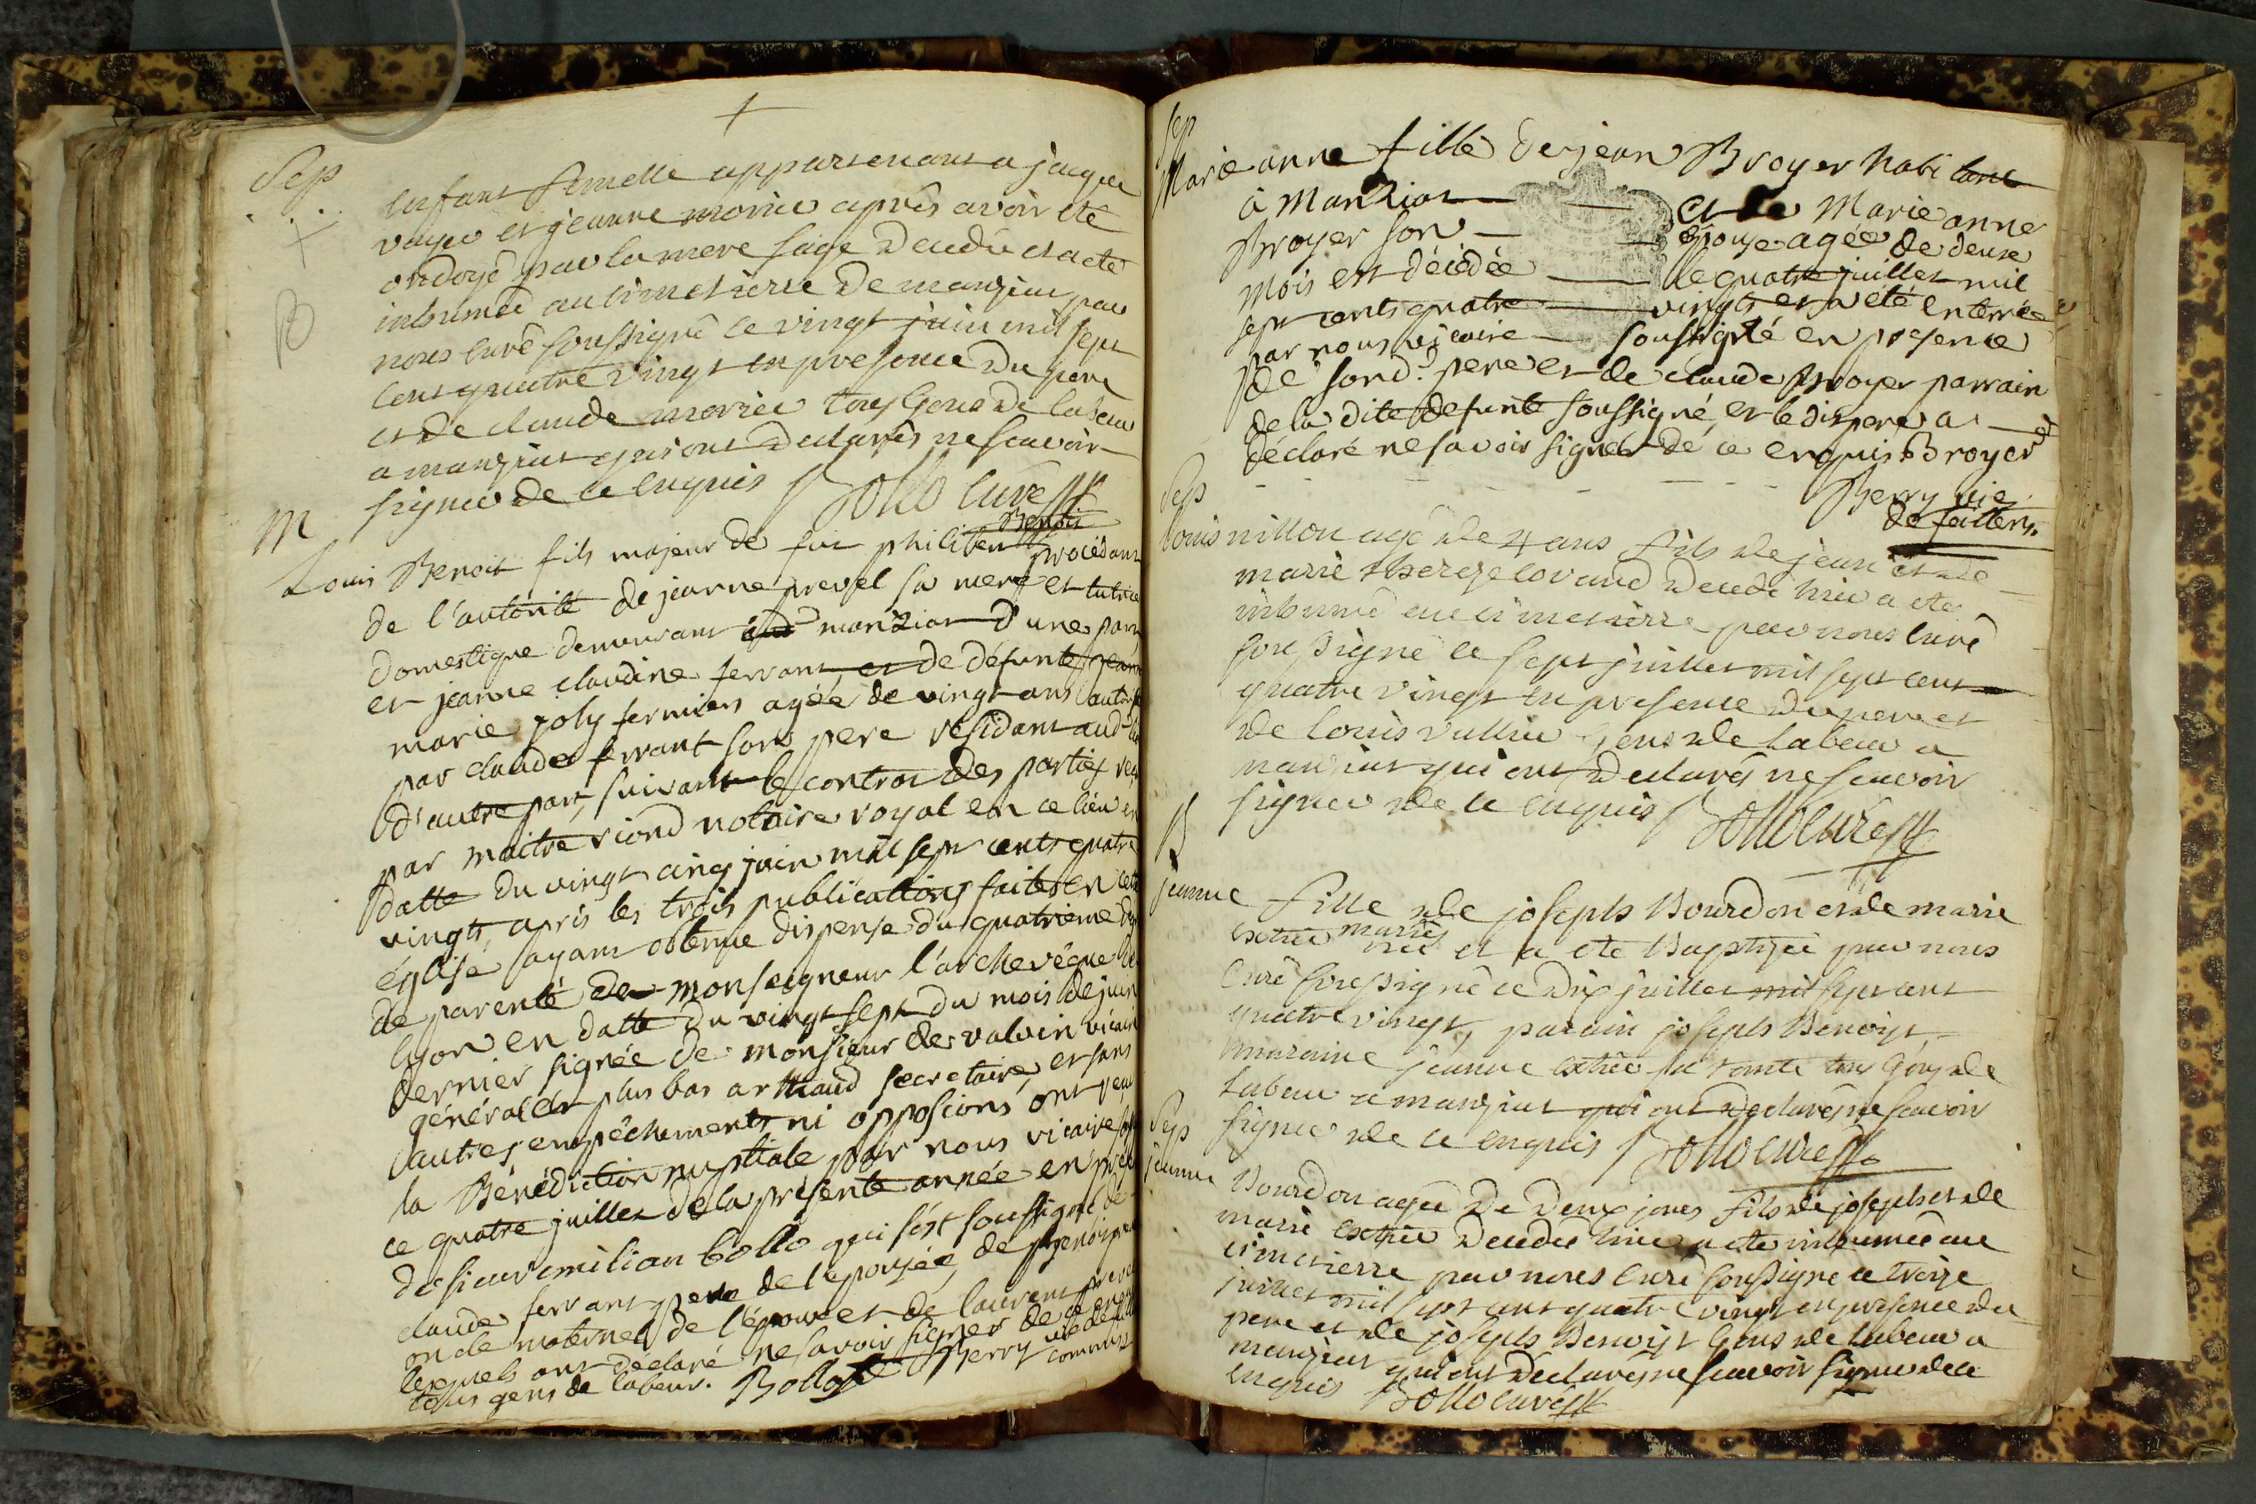 Sep
enfant femelle appartenant a jaque
et jeanne morier après avoir été
ondoyé par la mere sage decedée et a eté
inhumée au cimetierre de manziat par
nous curé soussigné ce vingt juin mil sept
cent quatre vingt en presence du pere
et de claude morier tous gens de labeur
a manziat qui ont declarés ne scavoir
signer de ce enquis Bollo curé
B
M
Benoit
Louis Benoit fils majeur de feu philibert procédant
de l'autorité de jeanne prevel sa mere et tutrice
domestique demeurant manziat d'une part
et jeanne claudine ferrant et de défunte jeanne
marie joly fermiers agée de vingt ans
par claude ferrant son pere résidant aud
d'autre part, suivant le contrat des parties
par maitre riond notaire royal en ce lieu en
datte du vingt cinq juin mil sept cents quatre
vingts, après les trois publications faites en cette
église ayant obtenue dispense du quatrieme
de parenté de monseigneur l'archevêque de
lyon en datte du vingt sept du mois de juin
dernier signée de monsieur de valvin vicaire
général et plus bas arthaud secretaire, et sans
autres empêchements ni opposions ont
la Bénédiction nuptiale par nous vicaire
ce quatre juillet de la présente année en
de sieur emilian bollo qui s'est soussigné de
claude ferrant pere de l'epousée, de
oncle maternel de l'époux et de laurent prevel
lesquels ont declaré ne savoir signer de ce
tous gens de labeur. Bollo Berry vic
commis
Sep
Marie anne fille de jean Broyer habitant
à Manziat et de Marie anne
Broyer son épouse agée de deux
mois est décédée le quatre juillet mil
sept cents quatre vingts et a été enterrée
par nous vicaire soussigné en presence
de sond. pere et de claude Broyer parrain
de la dite defunte soussigné, et le dit pere a
déclaré ne savoir signer de ce enquis Broyer
Berry vic
Sep
louis nillon agé de 4 ans fils de jean et de
marie thereze lovand decedé hier a eté
inhumé au cimetierre par nous curé
soussigné ce sept juillet mil sept cent
quatre vingt en presence du pere et
de louis vullin gens de labeur a
manziat qui ont declarés ne scavoir
signer de ce enquis Bollo curé
B
jeanne fille de joseph Bourdon et de marie
mariés
née et a eté baptizée par nous
curé soussigné ce dix juillet mil sept cent
quatre vingt, parain joseph Benoist
maraine jeanne sa tante tous gens de
labeur a manziat qui ont declarés ne scavoir
signer de ce enquis Bollo curé
Sep
jeanne Bourdon agée de deux jours fils de joseph et de
marie decedée hier a eté inhumée au
cimetierre par nous curé soussigné ce treize
juillet mil sept cent quatre vingt en presence du
pere et de joseph Benoist gens de labeur a
manziat qui ont declarés ne scavoir signer de ce
enquis Bollo curé